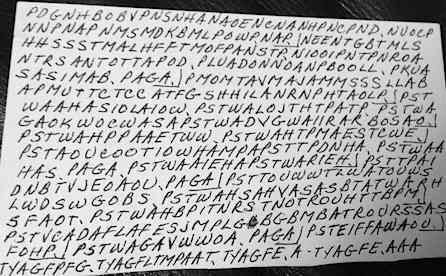 PDGNHBOBVPNSNHANAOENCNANHPNCPND. NUOLP
NNPNAPNMSMDKBMLPOWPNAR NEENTGBTMLS
HHSSSTMALHFFTMOFPANSTR. NIOOIPNTPNROA
NTRSANTOTTAPOD. PLUADONNOANPBOELL. PKUA
SASIMAB. PAGA. PMOMTAVMAJAMMSSSLLAB
APMUTTCTCC ATFG-SHHILANRNPHTAOLR PST
WAAHASIOLAIOW. PSTWALOJTHTPATP. PSTWA
GAOKWOCWASAPSTWADVGWAIIRAR BOSAO.
PSTWAHPPAAETWW. PSTWAHTPMAESTCWE.
PSTAOUCOOTIOWHAMPAPSTTPDNHA. PSTWAA
HAS. PAGA. PSTWAAIEHAPSTWARIEH. PSTTPAI
DNBTVJEOAOU. PAGA PSTTOUWWTLWATOUWS
LWDSWGOBS. PSTWAHSAHVASASBTATWIARH
SFAOT. PSTWAHBPITNRSTNOTROUHTTBPM
PSTVCADAFLAFESJMPLG BGBMBATROURSSAS
FOHP. PSTWAGAVWWOA. PAGA PSTEIFFAWAOU
TYAGFPFG. TYAGFLTMPAAT. TYAGFE. A-TYAGFE. AAA